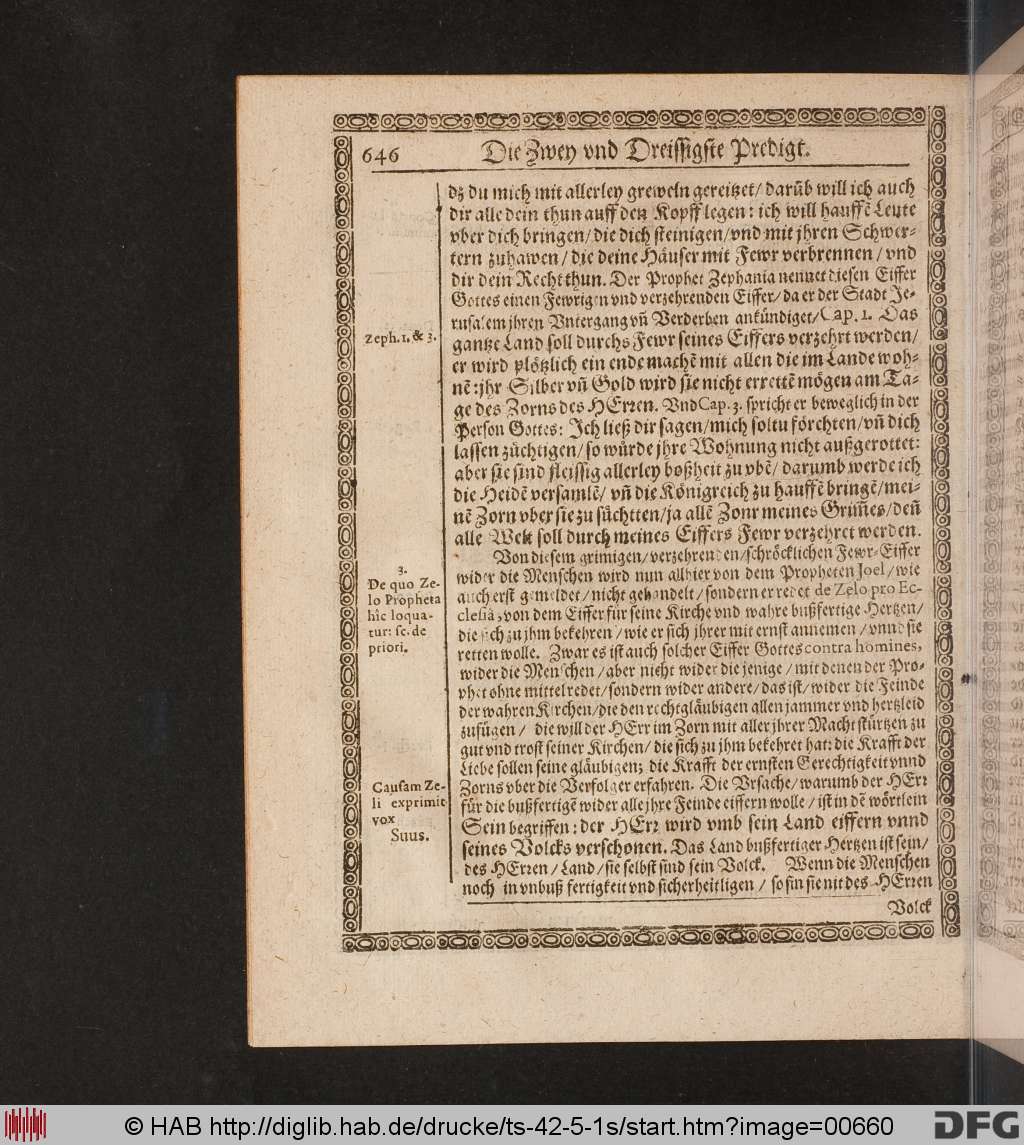 646 Die Zwey vnd Dreissigste Predigt.
dz du mich mit allerley greweln gereitzet/ darũb will ich auch
dir alle dein thun auff den Kopff legen: ich will hauffẽ Leute
vber dich bringen/ die dich steinigen/ vnd mit jhren Schwer-
tern zuhawen/ die deine Häuser mit Fewr verbrennen/ vnd
dir dein Recht thun. Der Prophet Zephania nennet diesen Eiffer
Gottes einen Fewrigen vnd verzehrenden Eiffer/ da er der Stadt Je-
rusalem jhren Vntergang vñ Verderben ankündiget/ Cap. 1. Das
Zeph. 1. & 3.
gantze Land soll durchs Fewr seines Eiffers verzehrt werden/
er wird plötzlich ein ende machẽ mit allen die im Lande woh-
nẽ: jhr Silber vñ Gold wird sie nicht errettẽ mögen am Ta-
ge des Zorns des HErren. Vnd Cap. 3. spricht er beweglich in der
Person Gottes: Ich ließ dir sagen/ mich soltu förchten/ vñ dich
lassen züchtigen/ so würde jhre Wohnung nicht außgerottet:
aber sie sind fleissig allerley boßheit zu vbẽ/ darumb werde ich
die Heidẽ versamlẽ/ vñ die Königreich zu hauffẽ bringẽ/ mei-
nẽ Zorn vber sie zu süchtten/ ja allẽ Zonr meines Grim̃es/ deñ
alle Welt soll durch meines Eiffers Fewr verzehret werden.
3.
De quo Ze-
lo Propheta
hîc loqua-
tur: sc. de
priori.
Von diesem grimigen/ verzehrenden/ schröcklichen Fewr-Eiffer
wider die Menschen wird nun allhier von dem Propheten Joel/ wie
auch erst gemeldet/ nicht gehandelt/ sondern er redet de Zelo pro Ec-
clesiâ, von dem Eiffer für seine Kirche vnd wahre bußfertige Hertzen/
die sich zu jhm bekehren/ wie er sich jhrer mit ernst annemen/ vnnd sie
retten wolle. Zwar es ist auch solcher Eiffer Gottes contra homines,
wider die Menschen/ aber nicht wider die jenige/ mit denen der Pro-
phet ohne mittel redet/ sondern wider andere/ das ist/ wider die Feinde
der wahren Kirchen/ die den rechtgläubigen allen jammer vnd hertzleid
zufügen/ die will der HErr im Zorn mit aller jhrer Macht stürtzen zu
gut vnd trost seiner Kirchen/ die sich zu jhm bekehret hat: die Krafft der
Liebe sollen seine gläubigen; die Krafft der ernsten Gerechtigkeit vnnd
Zorns vber die Verfolger erfahren. Die Vrsache/ warumb der HErr
Causam Ze-
li exprimit
vox
Suus.
für die bußfertigẽ wider alle jhre Feinde eiffern wolle/ ist in dẽ wörtlein
Sein begriffen: der HErr wird vmb sein Land eiffern vnnd
seines Volcks verschonen. Das Land bußfertiger Hertzen ist sein/
des HErren/ Land/ sie selbst sind sein Volck. Wenn die Menschen
noch in vnbuß fertigkeit vnd sicherheit ligen/ so sin sie nit des HErren
Volck
© HAB http://diglib.hab.de/drucke/ts-42-5-1s/start.htm?image=00660
DFG